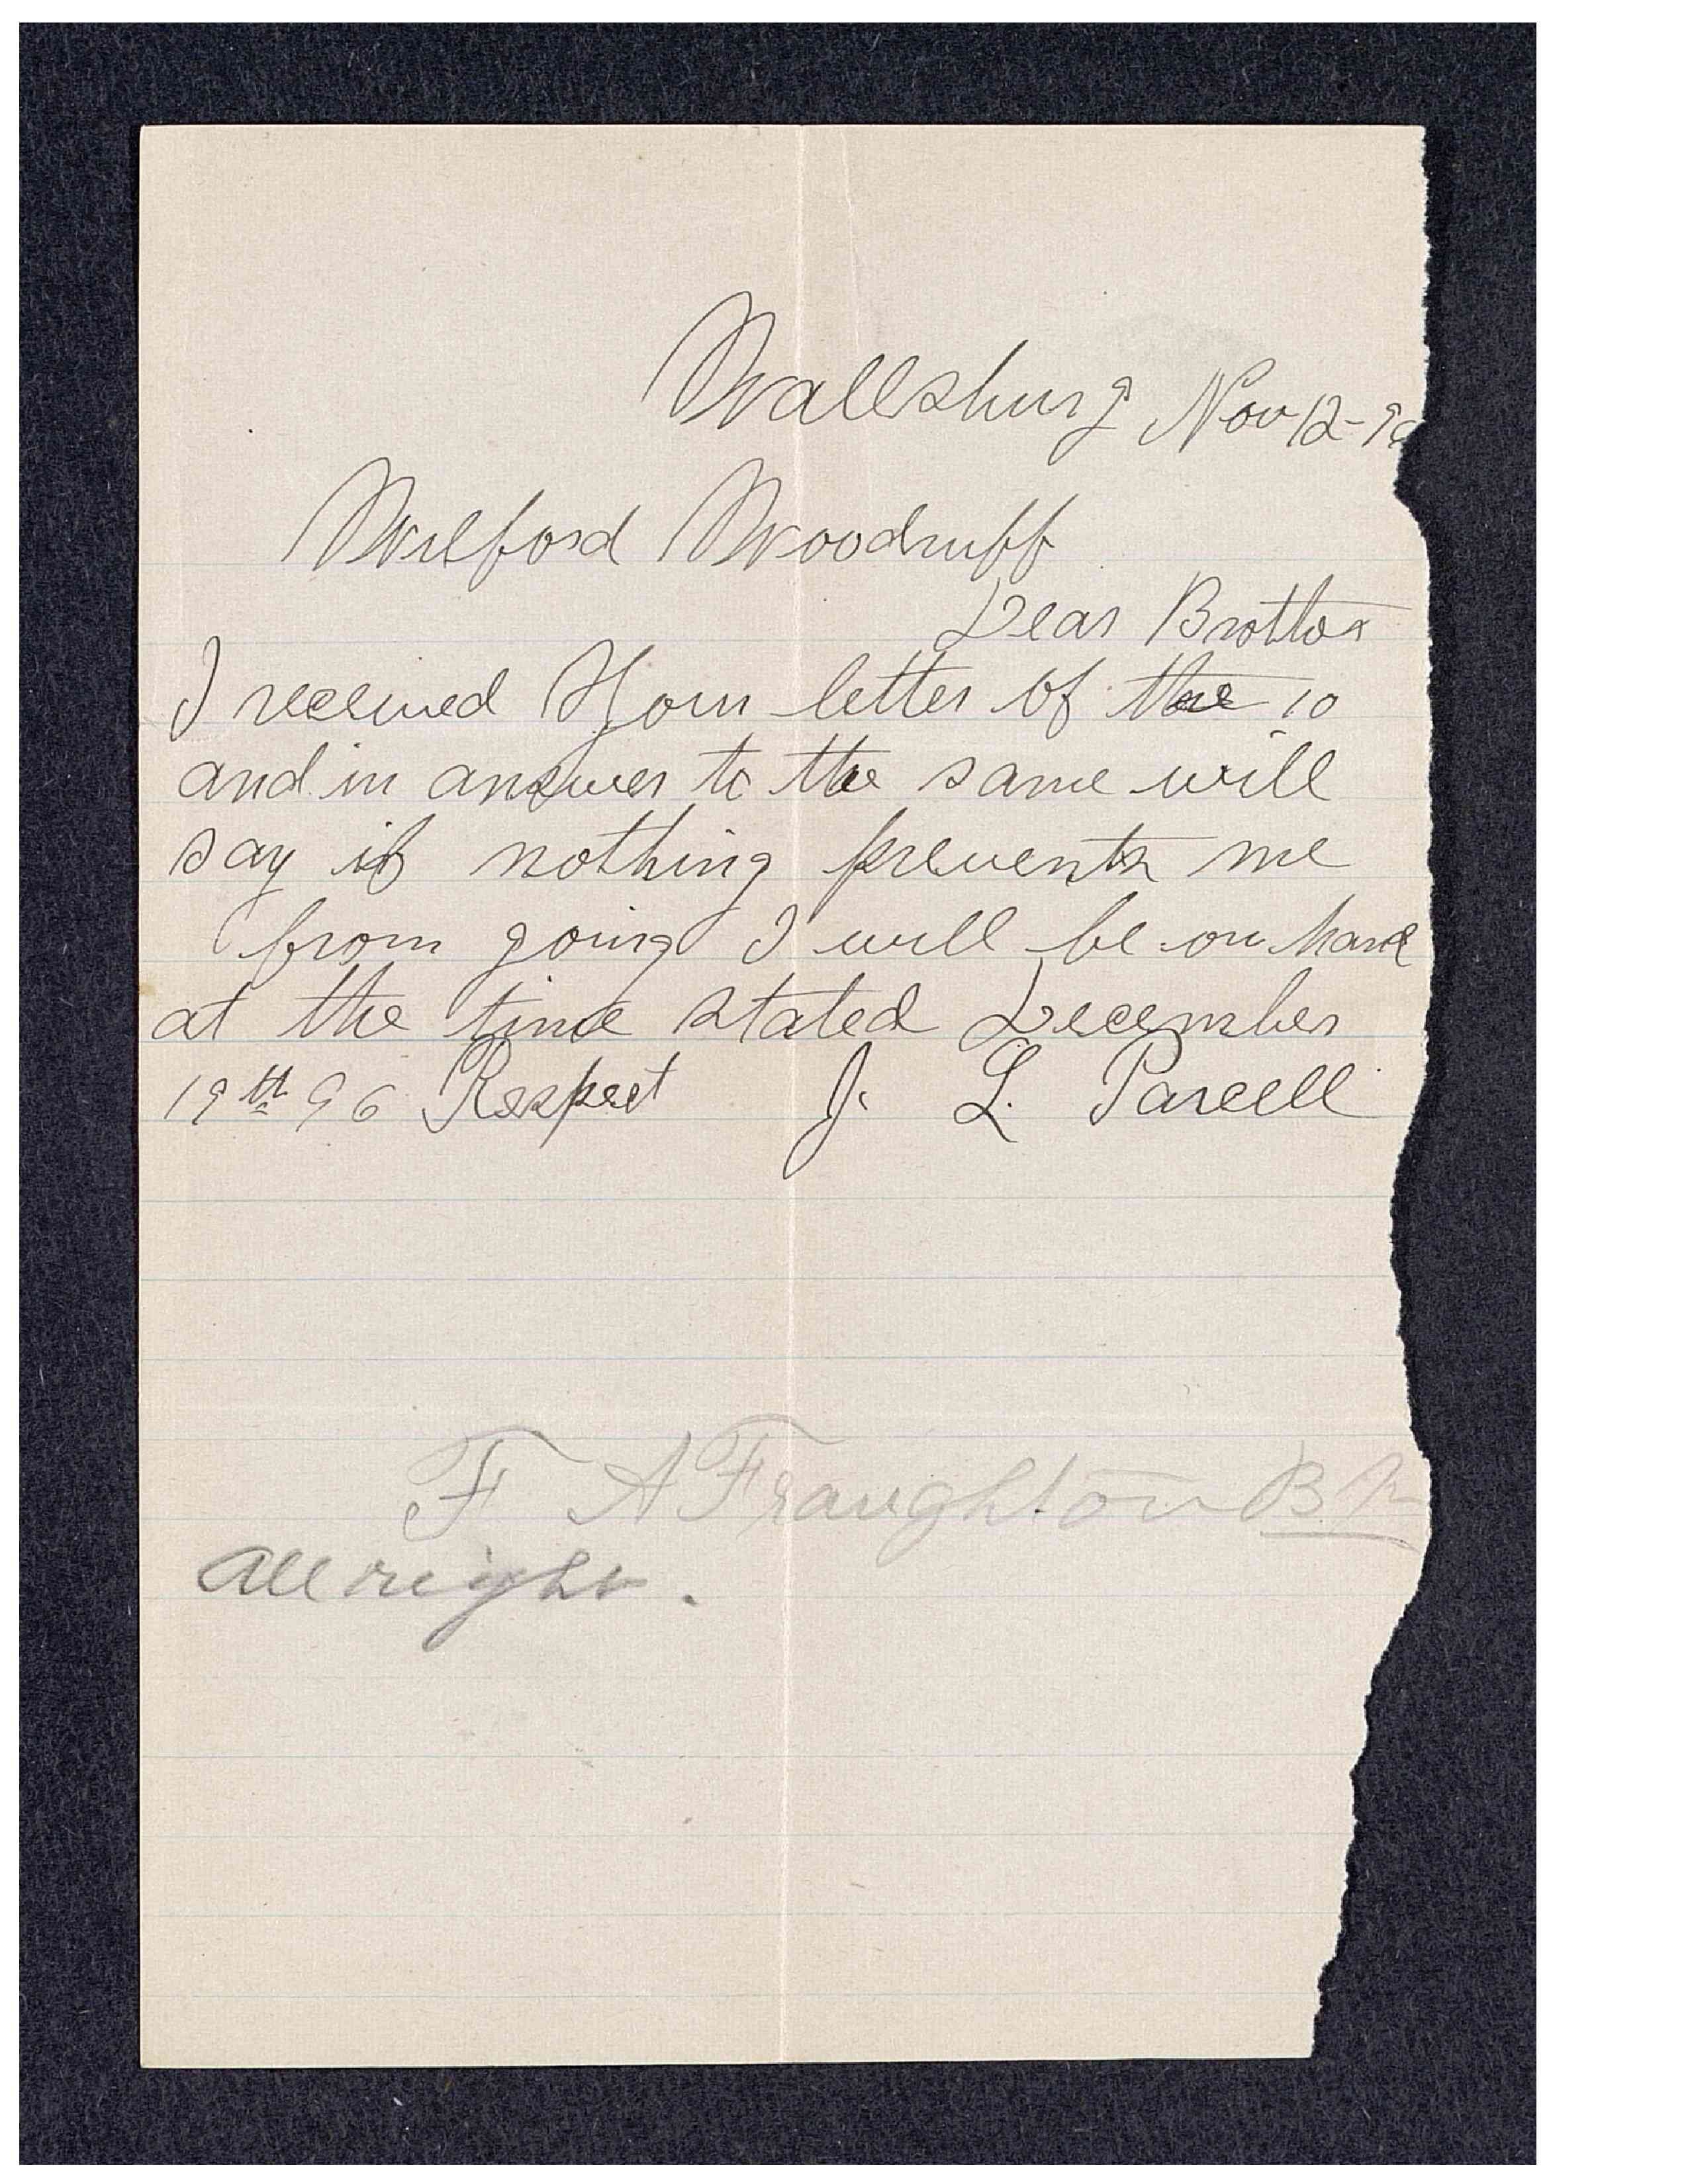 Wallsburg Nov 12-96
Wilford Woodruff
Dear Brother
I received Your letter of the 10
and in answer to the same will
say if nothing prevents me
from going I will be on hand
at the time stated December
19th 96 Respect J. L. Parcell
F A Fraughton B.
all right.